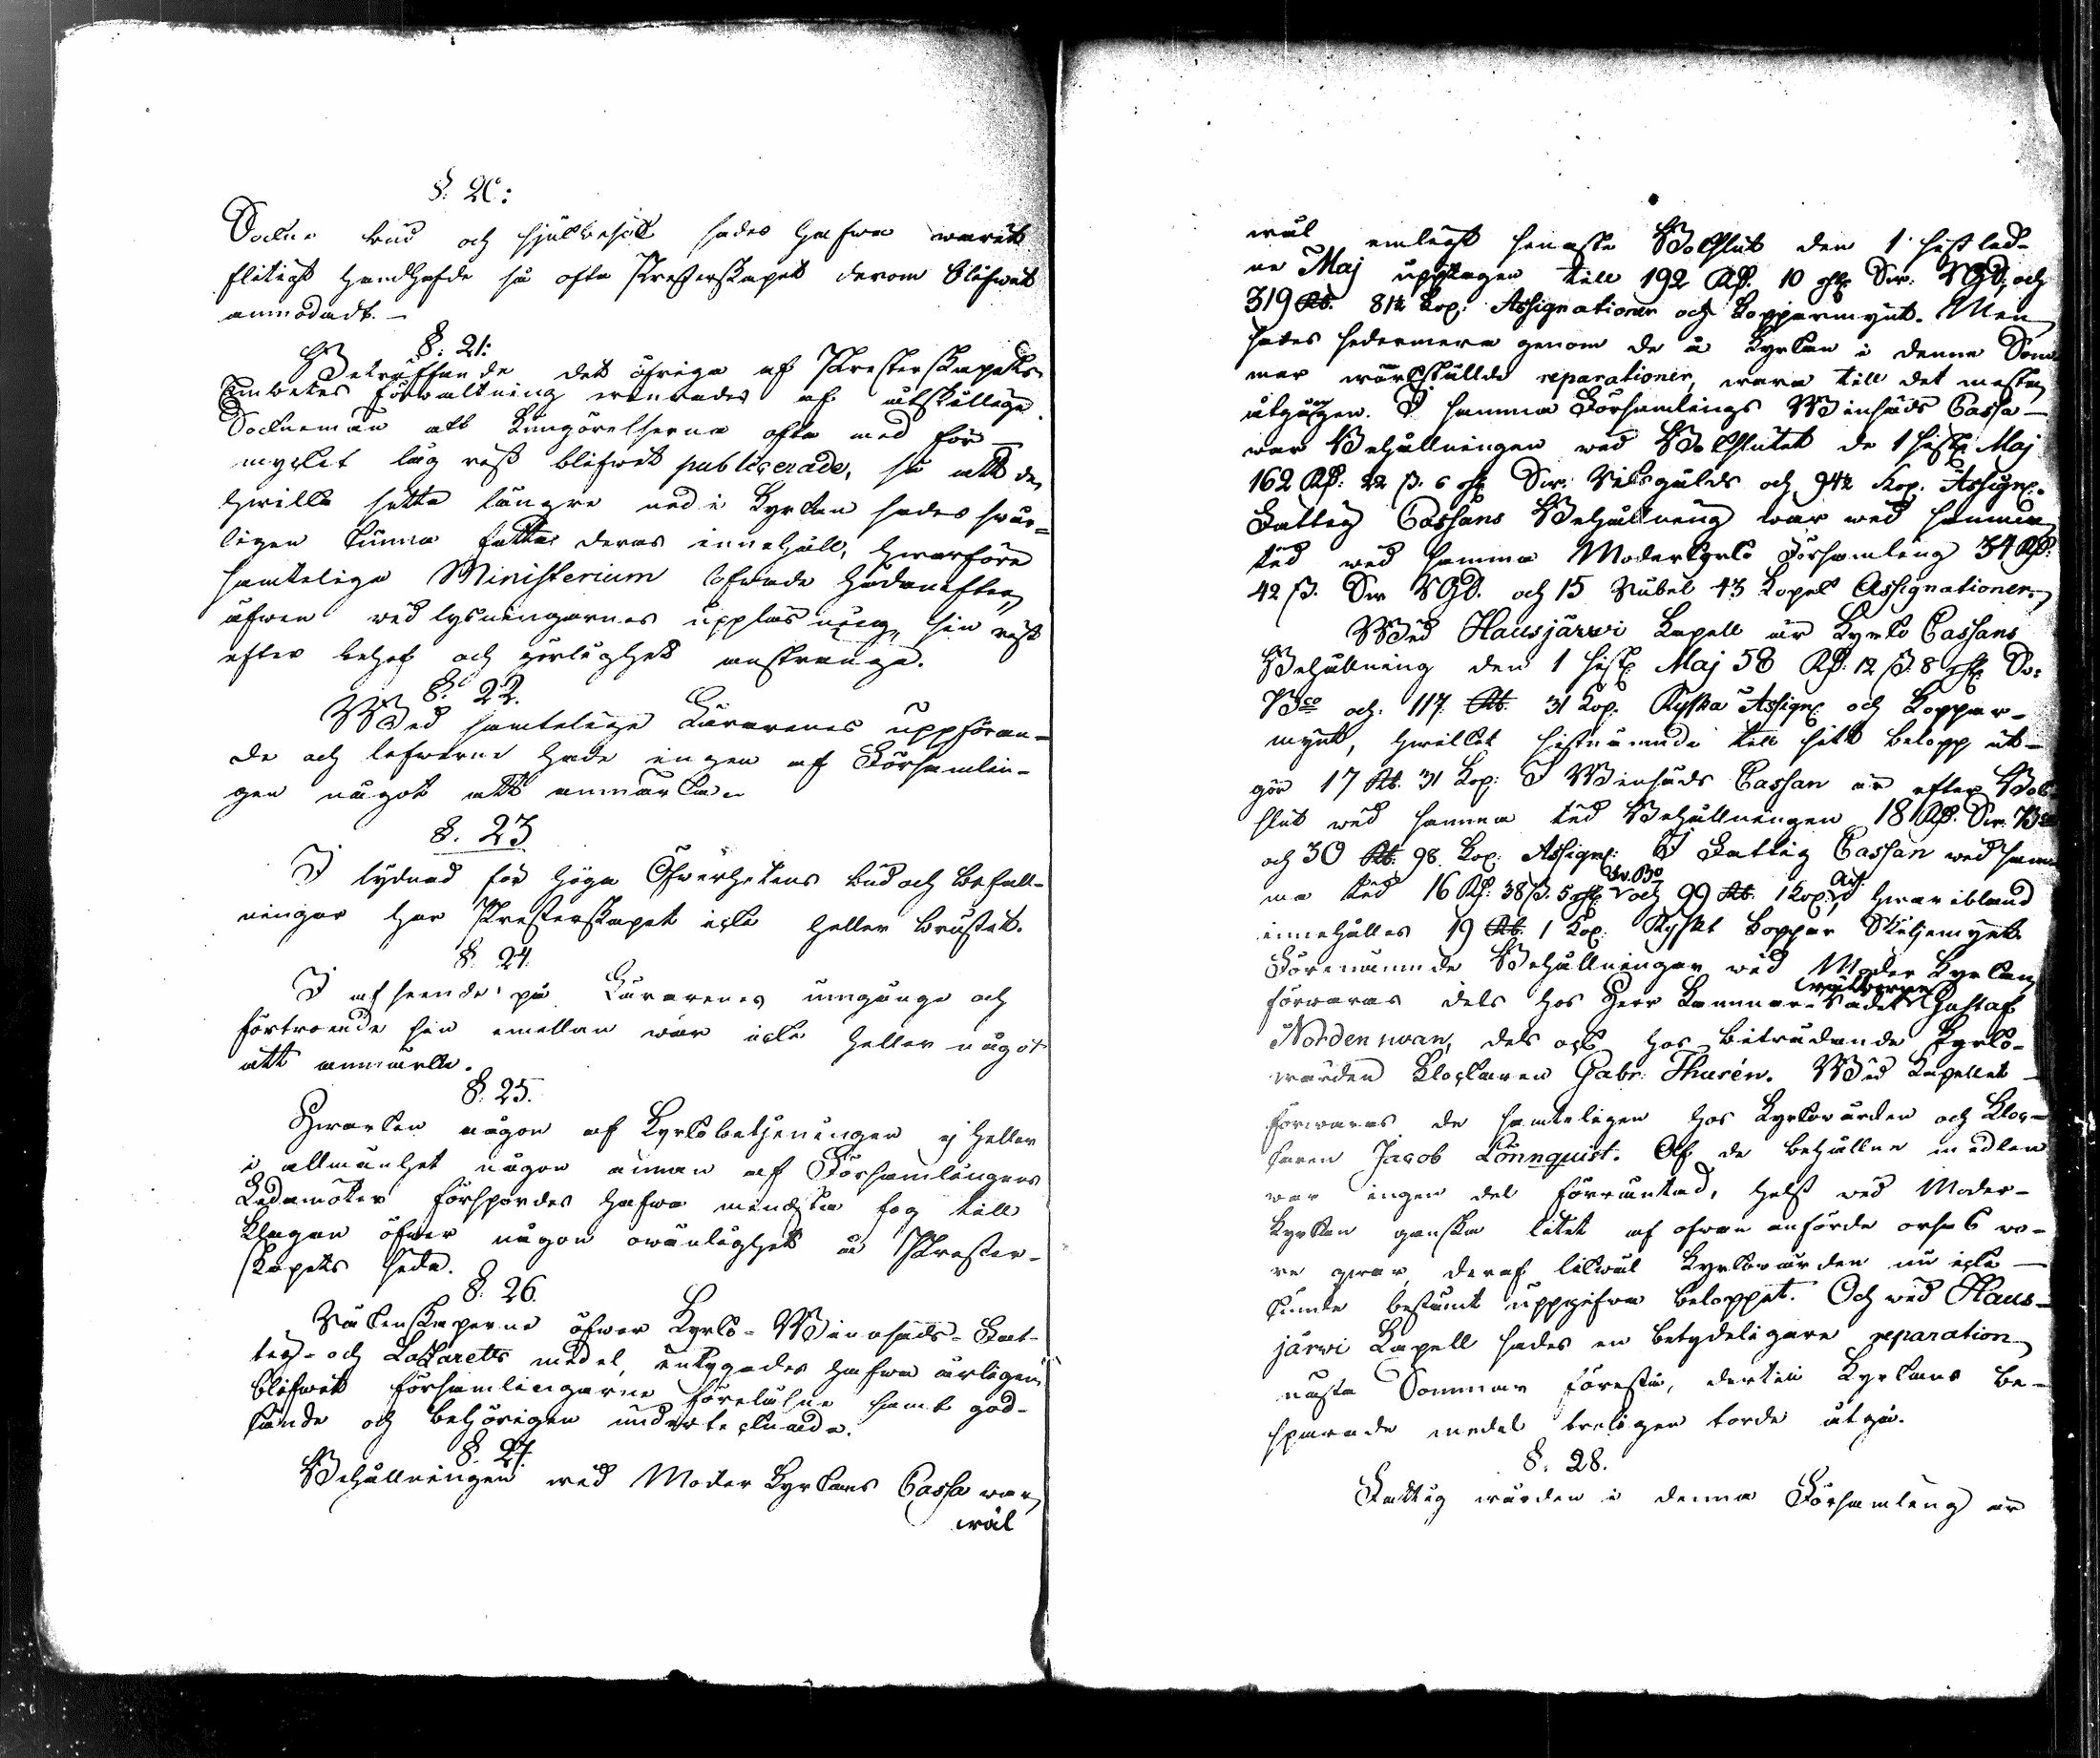 §. 20:
Sockne bud och sjukbesök sades hafwa warit
flitigt handhafde så ofta Presterskapet derom blifwit
anmodadt. —
§. 21:
Beträffande det öfriga af Presterskapets
Embetes förwaltning erinrades af åtskillige
Socknemän att kungörelserna ofta med för
mycket låg röst blifwit publicerade, så att de,
hwilka sutto längre ned i Kyrkan sades swår-
ligen kunna fatta deras innehåll, hwarföre
samtelige Ministerium lofwade hädanefter,
äfwen wid lysningarnes uppläsning, sin röst
efter behof och görlighet anstränga.
§. 22.
Wid samtelige Lärarenes uppföran-
de och lefwerne hade ingen af Församlin-
gen något att anmärka.
§. 23
I lydnad för höga Öfwerhetens bud och befall-
ningar har Presterskapet icke heller brustit.
§. 24.
I afseende på Lärarenes umgänge och
förtroende sin emellan war icke heller något
att anmärka.
§. 25.
Hwarken någon af Kyrkobetjeningen ej heller
i allmänhet någon annan af Församlingens
Ledamöter förspordes hafwa minsta fog till
klagan öfwer någon owänlighet å Prester-
skapets sida.
§. 26.
Räkenskaperne öfwer Kyrko- Winsäds- Fat-
tig- och Lazaretts medel, intygades hafwa årligen
blifwit församlingarne föreläsne samt god-
kände och behörigen undertecknade.
§. 27.
Behållningen wid Moder Kyrkans Cassa war,
wäl
wäl enligt senaste Bokslut den 1 sistled-
ne Maj upptagen till 192 Rd. 10 Swr. RGd. och
319 Rb. 81½ Kop: Assignationer och Kopparmynt. Men
sades sedermera genom de å Kyrkan i denna Som
mar wärkställde reparationer, wara till det mesta
utgången. I samma Församlings Winsäds Cassa —
war Behållningen wid Bokslutet de 1 sistl. Maj
162 Rd: 22 ß. 6 Swr. Riksgälds och 94½ Kop. Assign.
Fattig Cassans Behållning war wid samma
tid wid samma Moderkyrko Församling 34 Rd:
42 ß. Swr RGd. och 15 Rubel 43 Kopek Assignationer.
Wid Hausjärwi Kapell är Kyrko Cassans
Behållning den 1 sistl. Maj 58 Rd: 12 ß: 8 Sv:
Bco och 117. Rb. 31 Kop. Ryska Assign. och Koppar-
mynt, hwilket sistnämnde till sitt belopp ut-
gör 17 Rb. 31 Kop: I Winsäds Cassan är efter Bok
slut wid samma tid Behållningen 18 Rd. Swr. Bco
och 30 Rb. 98 Kop: Assign: I Fattig Cassan wid sam
ma tid 16 Rd: 38 ß. 5 Sv. Bo och 99 Rb. 1 Kop: As., hwaribland
innehålles 19 Rb. 1 Kop. Ryskt Koppar Skiljemynt.
Förenämnde Behållningar wid Moder Kyrkan
förwaras dels hos Herr Kammar-Rådet wälborne Gustaf
Nordenswan, dels ock hos biträdande Kyrko-
wärden Klockaren Gabr. Thurén. Wid Kapellet —
förwaras de samteligen hos Kyrkowärden och Kloc-
karen Jacob Lönnquist. Af de behållne medlen
war ingen del förräntad, helst wid Moder-
kyrkan ganska litet af ofwan anförde orsak wo-
re qwar, deraf likwäl Kyrkowärden nu icke —
kunde bestämt uppgifwa beloppet. Och wid Haus-
järwi Kapell sades en betydeligare reparation
nästa Sommar förestå, dertill Kyrkans be-
sparade medel troligen torde åtgå.
§. 28.
Fattig wården i denna Församling är